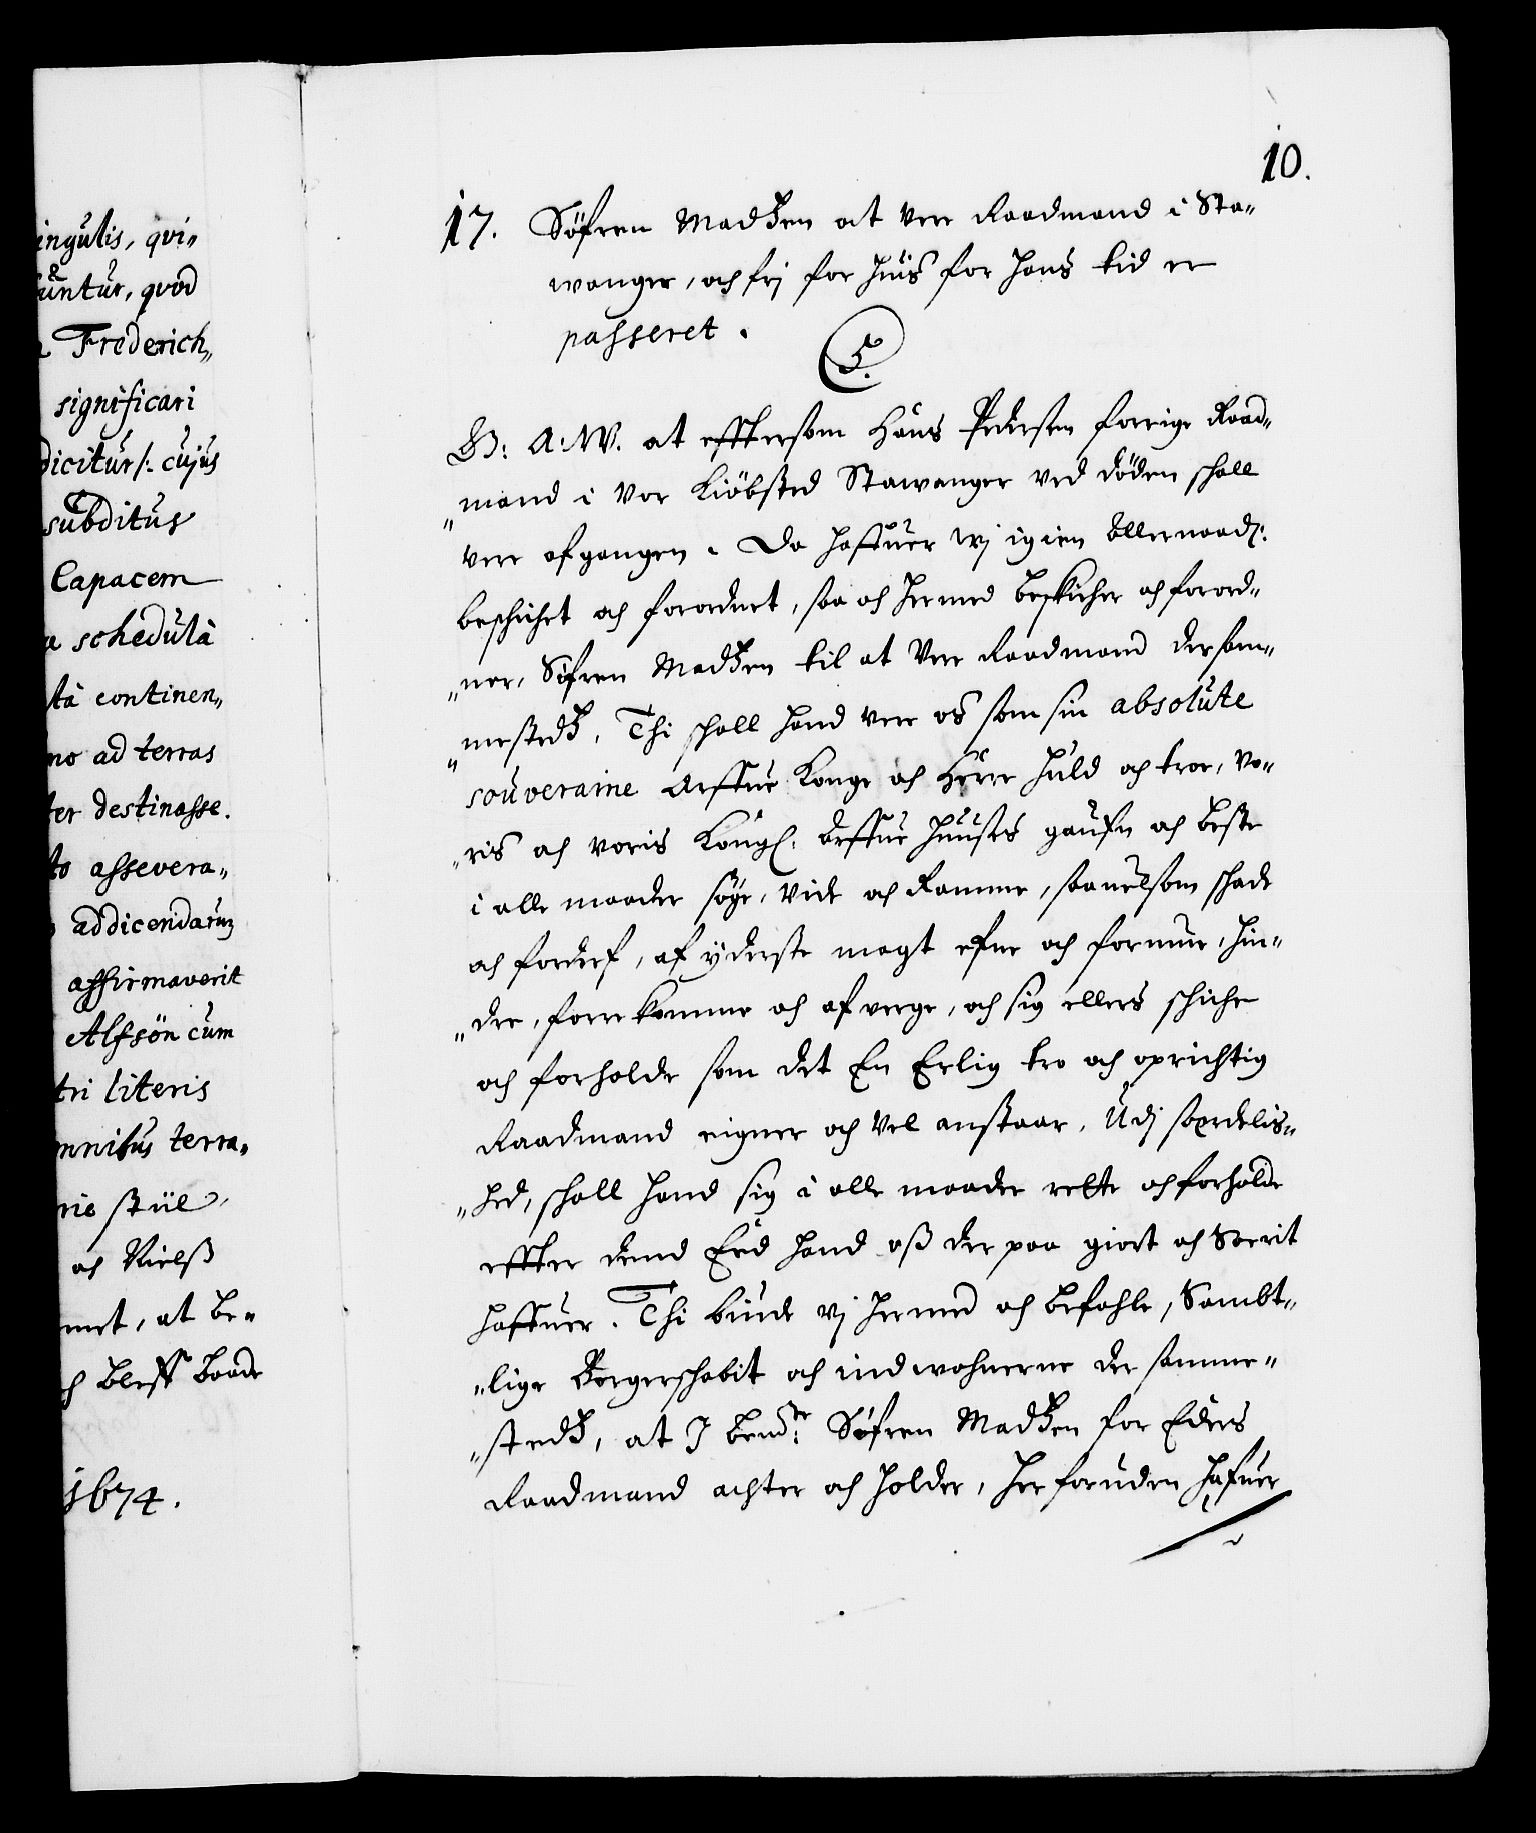 ingulis, qvi„
untur, qvod
Frederich„
significari
dicitur /: cujus
subditus
Capacem
schedulà
tà continen„
no ad terras
ter destinasse.
to assevera„
addicendarum
affirmaverit
Alfsön cum
tri literis
mnibus terra„
rie stiil
och Nielß
met, at be„
ch bleff baade
1674.
10.
17. Söfren Madßen at vere Raadmand i Sta„
wanger, och frj for huis for hans tid er
passeret.
5.
G: A: W. at effttersom Hans Pedersen forrige Raad„
„mand i vor kiöbsted Stawanger ved döden schall
vere afgangen. Da haffuer wj igien Allernaad:
beschichet och forordnet, saa och hermed beskicher och forord„
„ner, Söfren Madßen til at vere Raadmand dersam„
„mestedß. Thi schall hand vere os som sin absolute
souveraine Arffue Konge och Herre huld och troe, vo„
„ris och voris Kongl. Arffue Huuses gaufn och beste
i alle maader söge, vide och Ramme, saauelsom schade
och forderf, af yderste magt efne och formue, hin„
„dre, forrekomme och afverge, och sig ellers schiche
och forholde som det En Erlig tro och oprichtig
Raadmand eigner och vel anstaar. Udj særdelis„
„hed, schall hand sig i alle maader rette och forholde
effter dend Eed hand oß der paa giort och Soerit
haffuer. Thi biude vj hermed och befahle, Sambt„
„lige Borgerschabit och indwohnerne der samme„
„stedß, at I bemte: Söfren Madßen for Eders
Raadmand achter och holder, her foruden hafuer